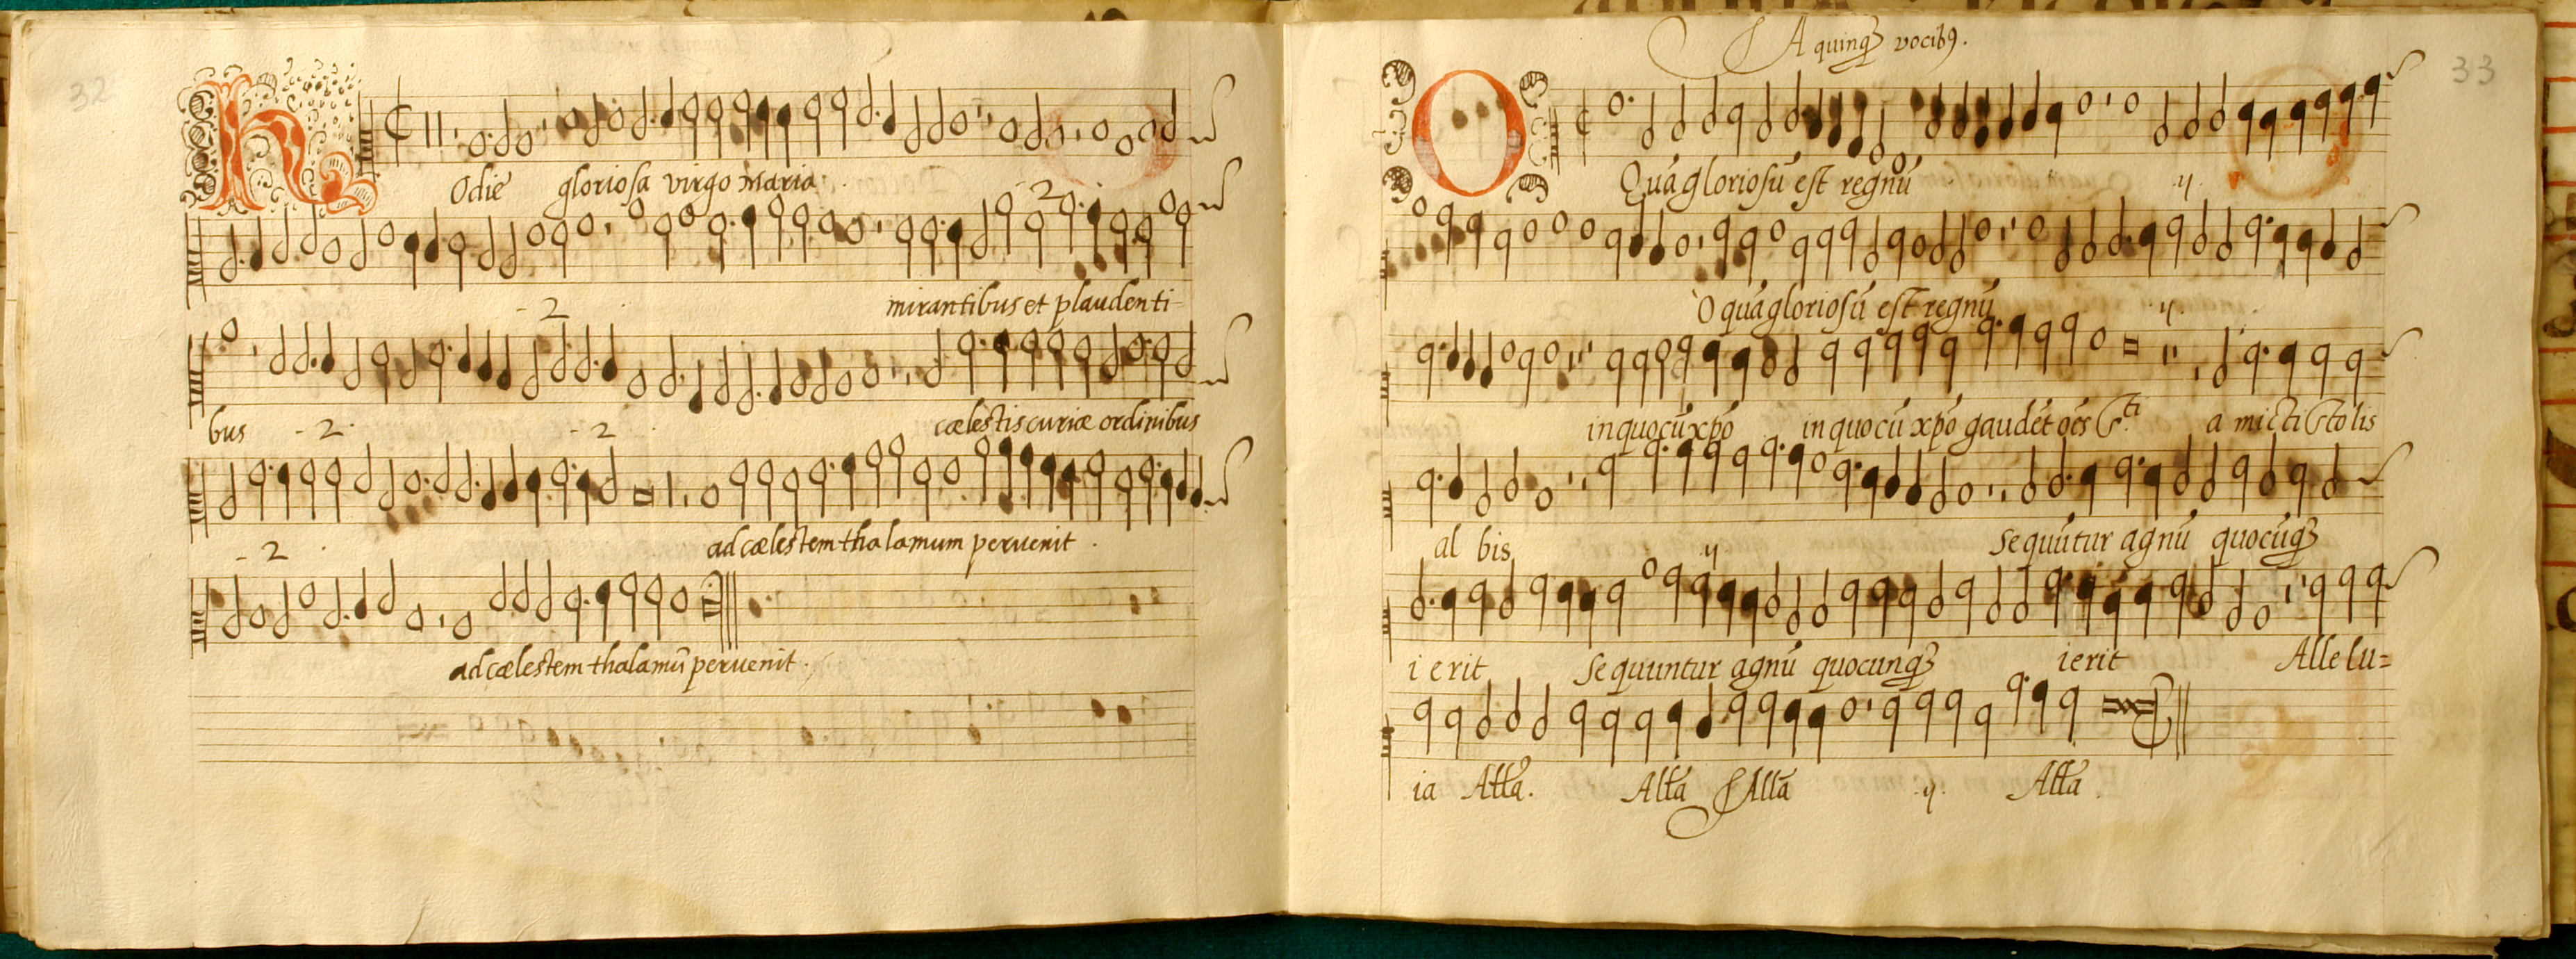 32
Hodie gloriosa virgo Maria.
- 2 .
- 2 . mirantibus et plaudenti-
bus - 2 . - 2 . cælestis curiæ ordinibus
- 2 . ad cælestem thalamum peruenit .
ad cælestem thalamũ peruenit .
33
A quinqȝ vocibꝰ.
O Quã gloriosũ est regnũ .ij.
O quã gloriosũ est regnũ ij.
in quo cũ xpõ in quo cũ xpõ gaudẽt oẽs Sti. a micti Sto lis
al bis ij Sequũtur agnũ quocũqȝ
i erit Sequuntur agnũ quocunqȝ ierit Alle lu=
ia All̃a. All̃a All̃a .ij. All̃a.